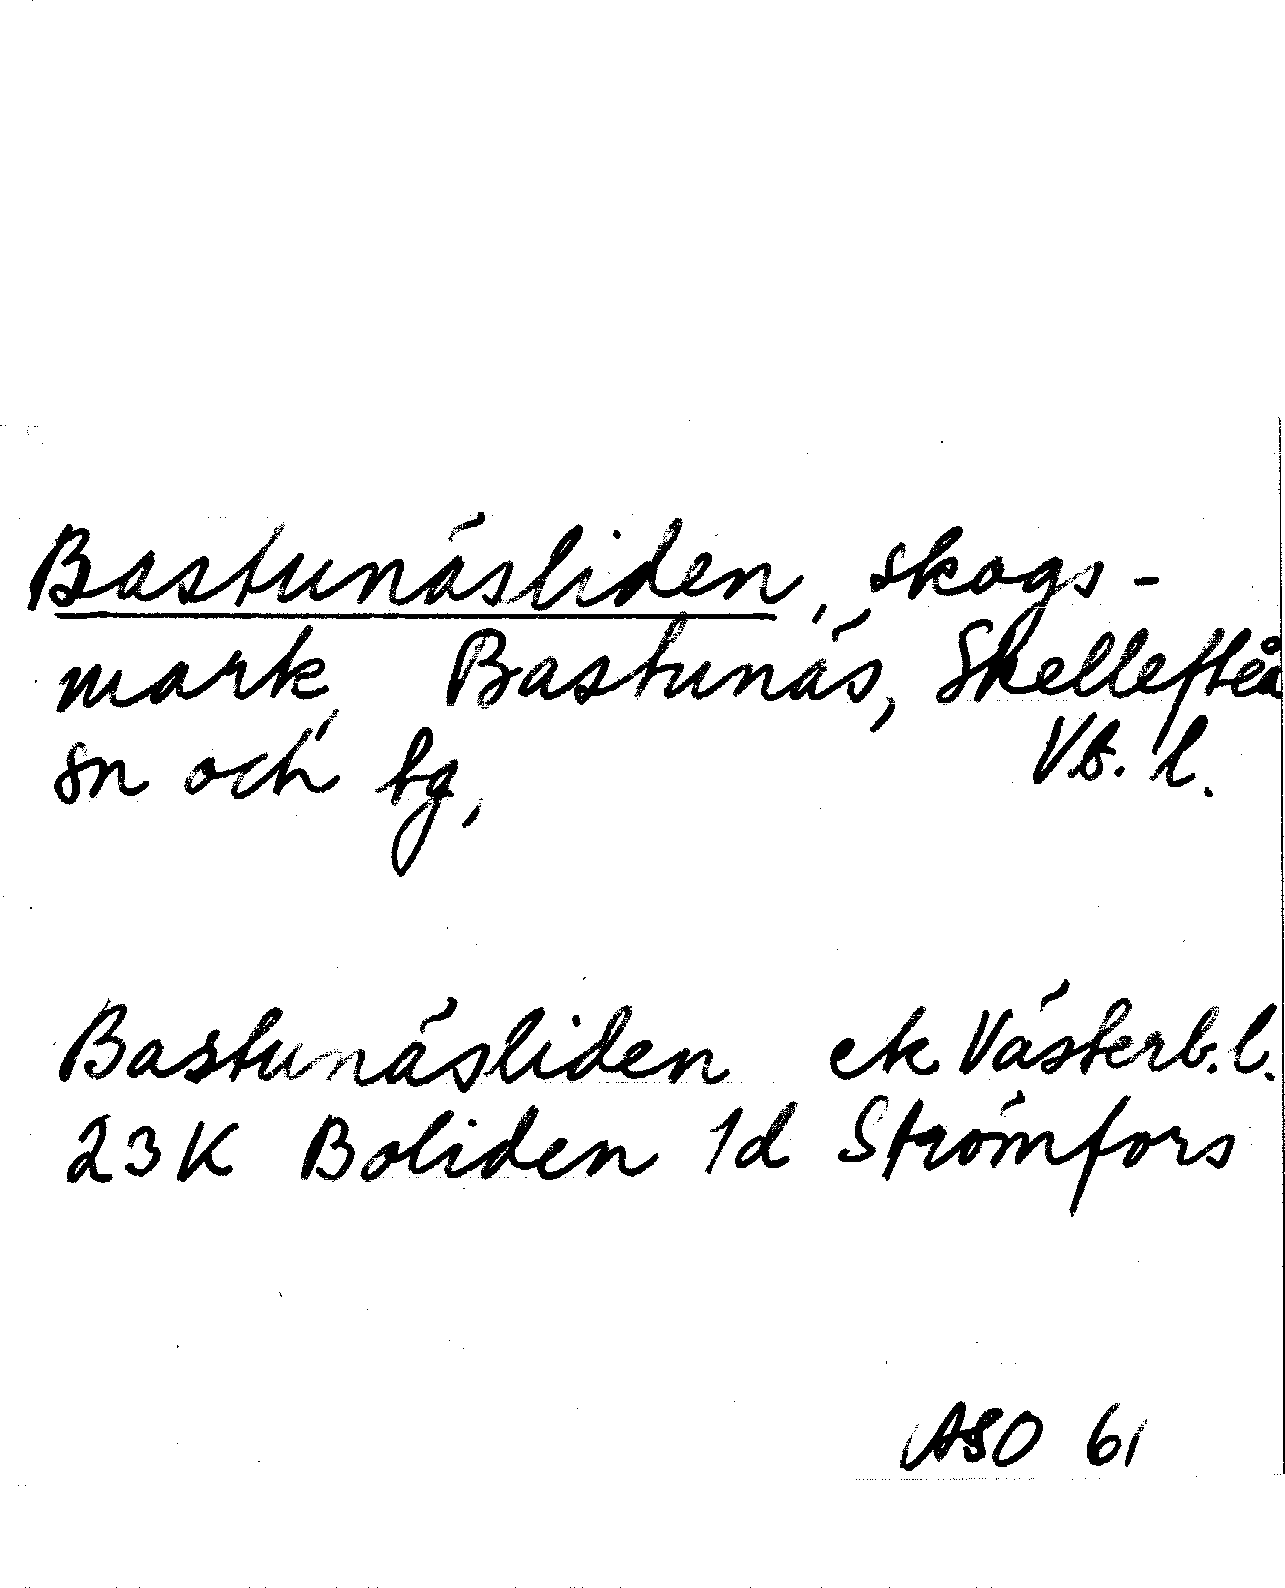 Bastunäsliden, skogs-
mark, Bastunäs, Skellefteå
sn och tg, Vb. l.
Bastunäsliden ek Västerb. l.
23K Boliden 1d Strömfors
ASO 61